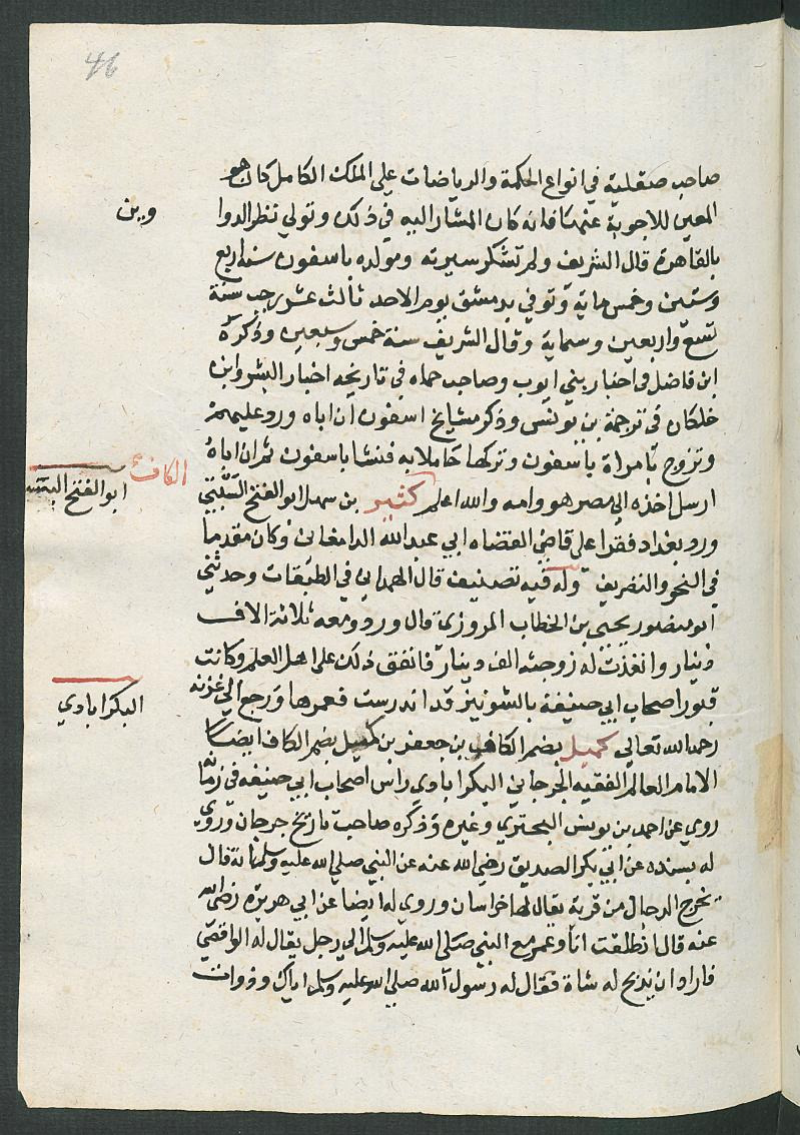 46
صاحب صقلية في انواع الحكمة والرياضات علي الملك الكامل كان هو
المعين للاجوبة عنها فانه كان المشار اليه في ذلك وتولي نظر الدوا
وين
بالقاهرة قال الشريف ولم تشكر سيرته ومولده باسفون سنة اربع
وستين وخمس ماية وتوفي بدمشق يوم الاحد ثالث عشر رجب سنة
تسع واربعين وستماية وقال الشريف سنة خمس وسبعين وذكره
ابن فاضل في اخبار بني ايوب وصاحب حماه في تاريخه اخبار البشر وابن
خلكان في ترجمة بن يونس وذكر مشايخ اسفون ان اباه ورد عليهم
وتزوج بامراة باسفون وتركها حاملا به فنشا باسفون ثم ان اباه
الكاف
ابو الفتح
ارسل اخذه الي مصر هو وامه والله اعلم كثير بن سهل ابو الفتح
ورد بغداد فقرا علي قاضي القضاه ابي عبد الله الدامغاني وكان مقدما
في النحو والتصريف وله فيه تصنيف قال الهمداني في الطبقات وحدثني
ابو منصور يحيي بن الخطاب المروزي قال ورد ومعه ثلاثة الاف
دينار وانفذت له زوجته الف دينار فانفق ذلك علي اهل العلم وكانت
البكراباذي
قبور اصحاب ابي حنيفة بالشونيز قد اندرست فعمرها ورجع الي غزنه
رحمه الله تعالي كميل بضم الكاف بن جعفر بن كميل بضم الكاف ايضا
الامام العالم الفقيه الجرجاني البكراباذي راس اصحاب ابي حنيفه في زمانه
روي عن احمد بن يونس البحتري وغيره وذكره صاحب تاريخ جرجان وروي
له بسنده عن ابي بكر الصديق رضي الله عنه عن النبي صلي الله عليه وسلم انه قال
يخرج الدجال من قرية يقال لها خراسان وروي له ايضا عن ابي هريرة رضي الله
عنه قال انطلقت انا وعمر مع النبي صلي الله عليه وسلم الي رجل يقال له الواقفي
فاراد ان يذبح له شاة فقال له رسول الله صلي الله عليه وسلم اياك وذوات